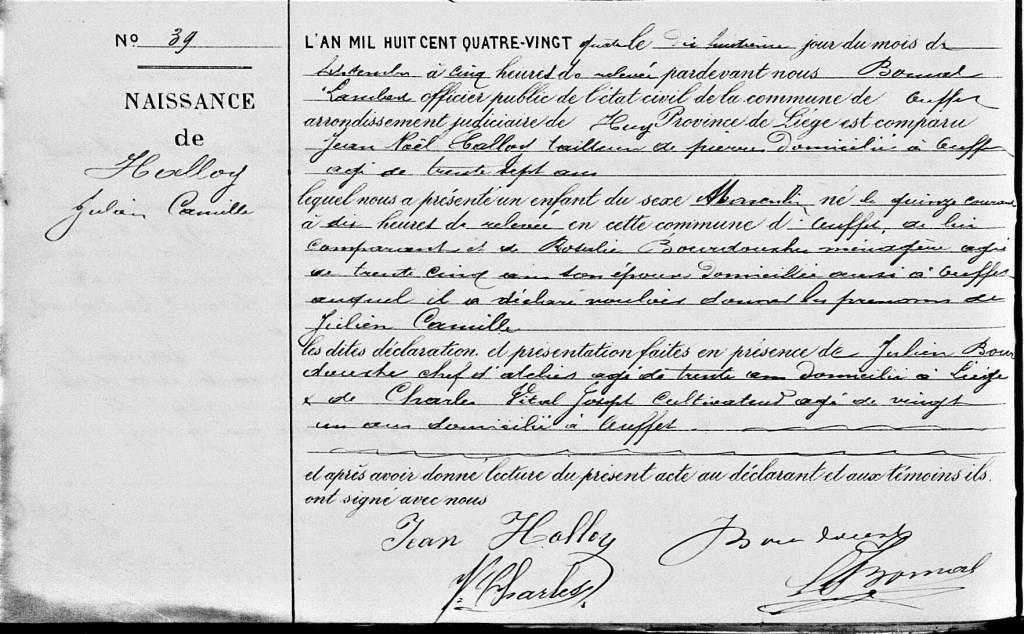 No 39
NAISSANCE
de
Halloy
Julien Camille
L'AN MIL HUIT CENT QUATRE-VINGT quatre le dix huitième jour du mois de
septembre à cinq heures de relevée pardevant nous Bomal
Lambert officier public de l'état civil de la commune de Ouffet
arrondissement judiciaire de Huy Province de Liége est comparu
Jean Noël Halloy tailleur de pierres domicilié à Ouffet
agé de trente sept ans
lequel nous a présenté un enfant du sexe Masculin né le quinze courant
à dix heures de relevée en cette commune d'Ouffet, de lui
comparant et de Rosalie Bourdouxhe ménagère agée
de trente cinq ans son épouse domiciliée aussi à Ouffet
auquel il a déclaré vouloir donner les prenoms de
Julien Camille
les dites déclaration et présentation faites en présence de Julien Bour
douxhe chef d'atelier agé de trente ans domicilié à Liége
& de Charles Vital Joseph Cultivateur agé de vingt
un ans domicilié à Ouffet
et après avoir donné lecture du présent acte au déclarant et aux témoins ils
ont signé avec nous
Jean Halloy Bourdouxhe
V. Charles LBomal